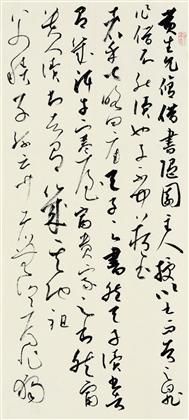 黃生允修借書隨園主人授以書而告之曰
書非借不能讀也子不聞藏書
者乎七略四庫天子之書然天子讀書
者有幾汗牛塞屋富貴家之書然富
貴人讀書者有幾其他祖
父積子孫棄者無論焉非獨